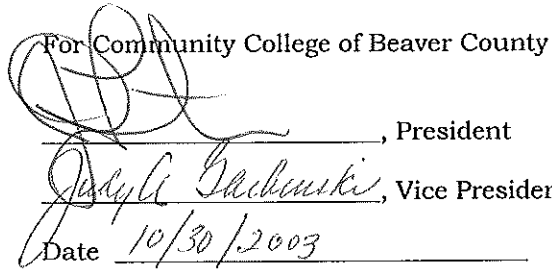 For Community College of Beaver County
, President
Judy A , Vice Presider
Date 10/30/2003